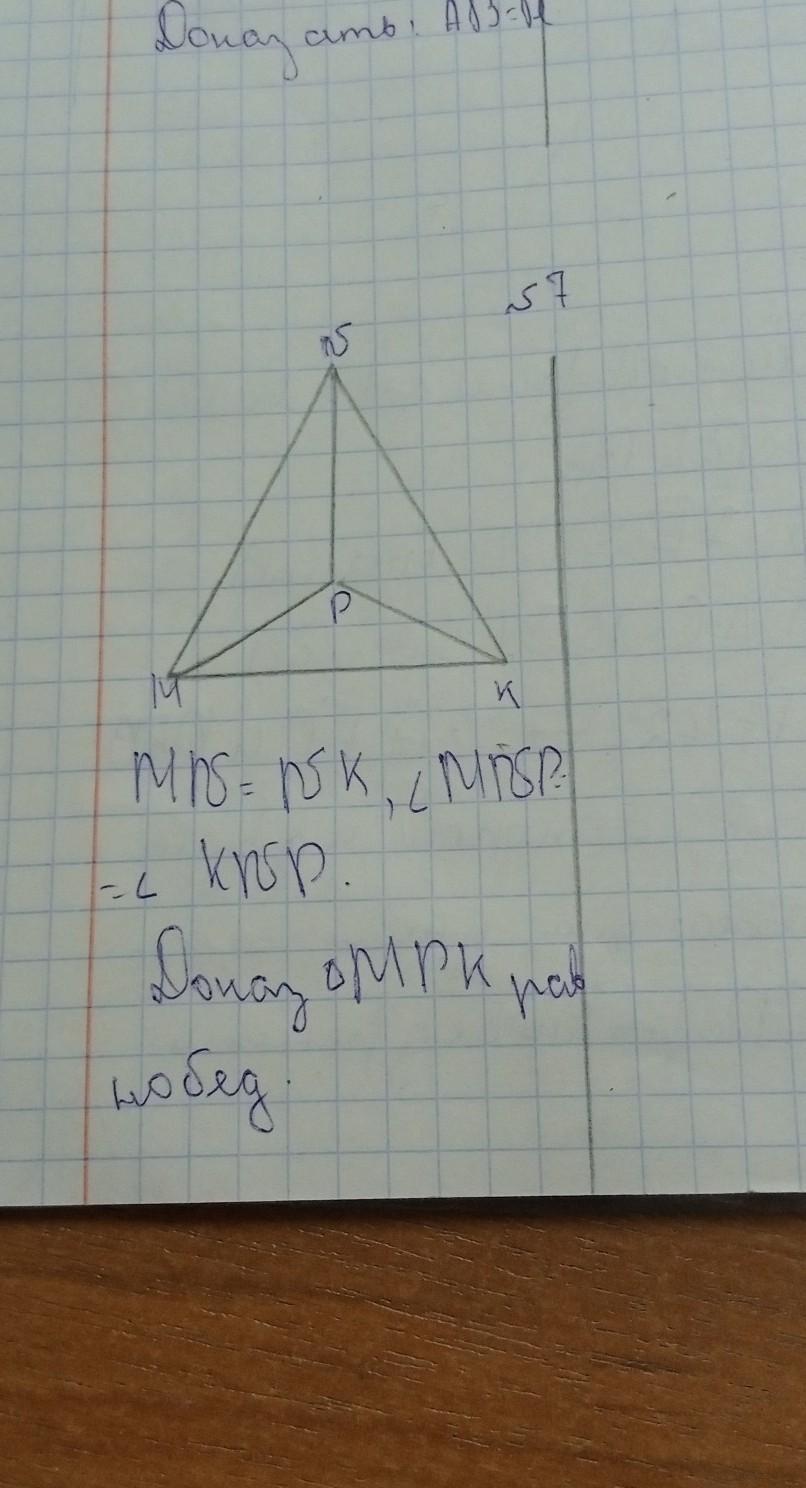 Доказать: АВ=
№7
N
P
M
K
MN=NK, ∠MNP=
=∠ KNP.
Доказ △MPK рав
нобед.